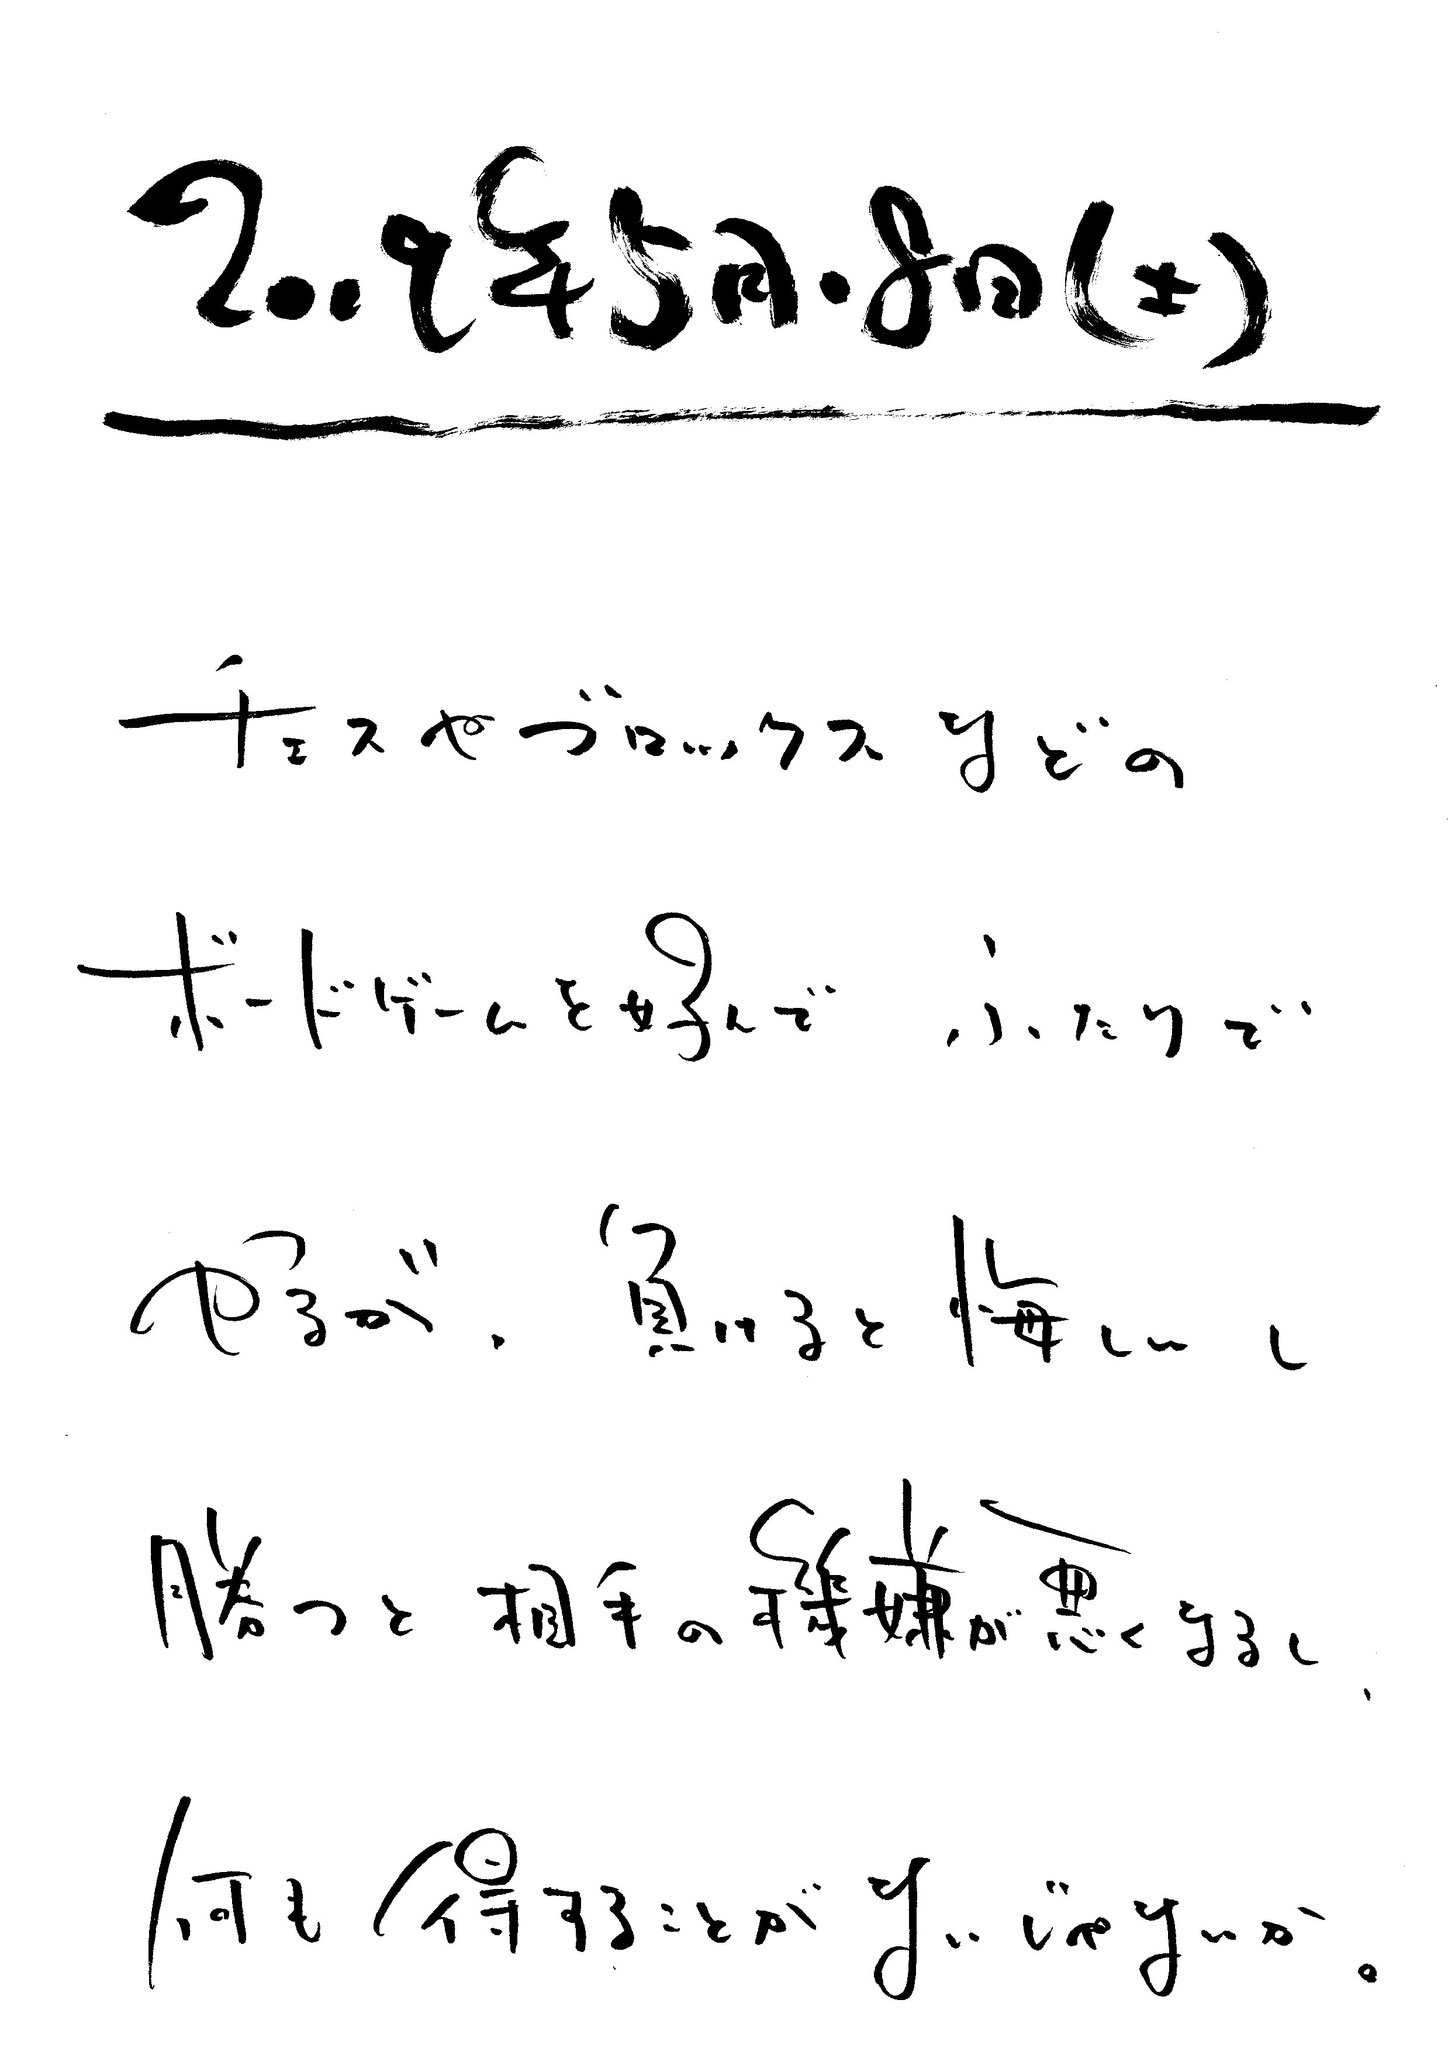 2009年5月08日(土)
チェスやブロックスなどの
ボードゲームを好んで ふたりで
やるが、負けると悔しいし
勝つと相手の機嫌が悪くなるし、
何も得することがないじゃないか。